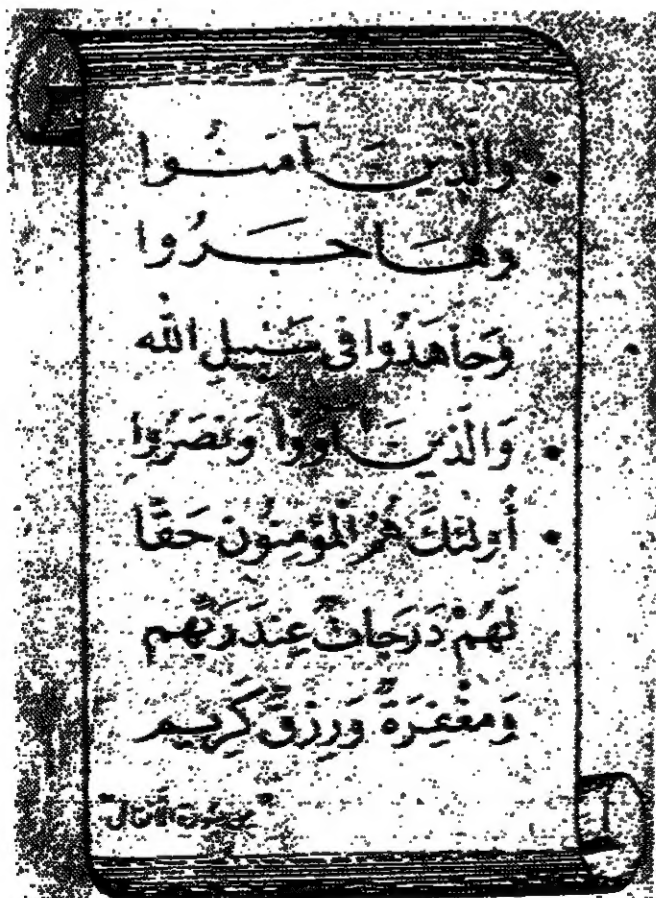 • وَالَّذِينَ آمَنُوا
وَهَاجَرُوا
وَجَاهَدُوا فِي سَبِيلِ اللَّه
• وَالَّذِينَ آوَوْا وَنَصَرُوا
• أُولَئِكَ هُمُ الْمُؤْمِنُونَ حَقًّا
لَّهُمْ دَرَجَاتٌ عِندَ رَبِّهِم
وَمَغْفِرَةٌ وَرِزْقٌ كَرِيم
"من سورة الأنفال"